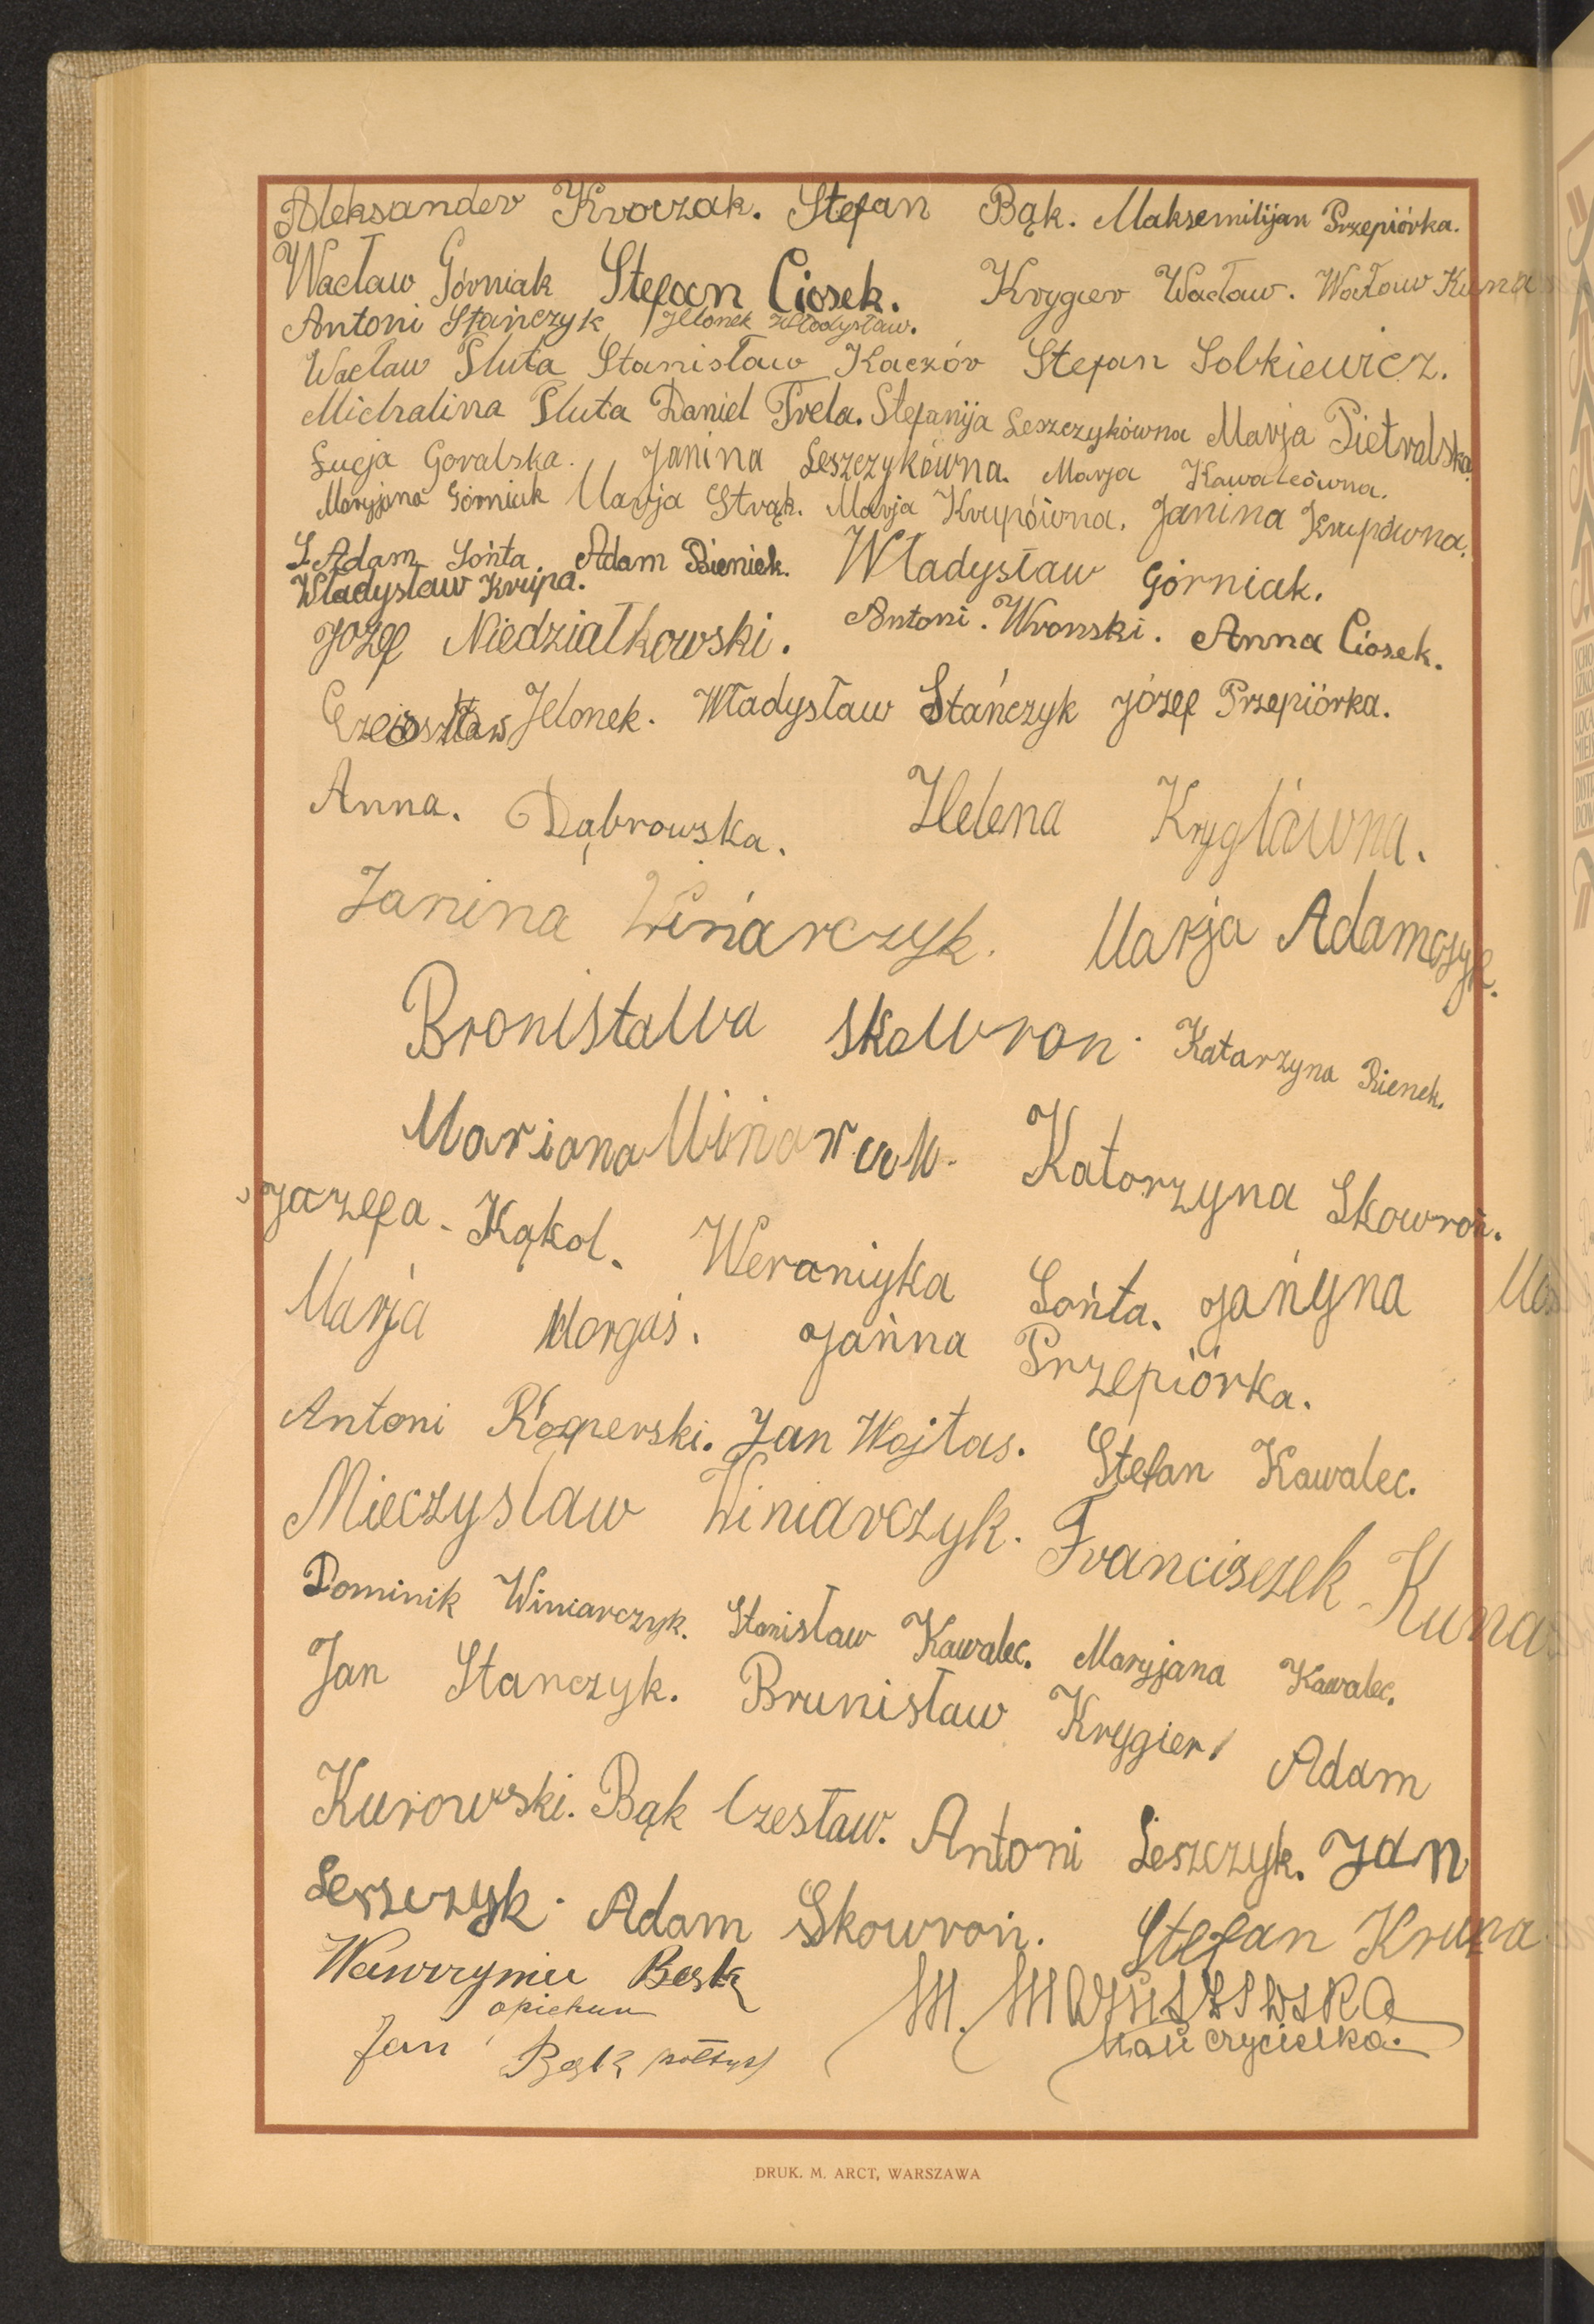 Aleksander Kroczak. Stefan Bąk. Maksemilijan Przepiórka.
Wacław Górniak Stefan Ciosek. Krygier Wacław. Wacław Kuna
Antoni Stańczyk Jelonek Władysław.
Wacław Pluta Stanisław Kaczór Stefan Sobkiewicz.
Michalina Pluta Daniel Trela. Stefanija Leszczykówna Marja Pietralska
Łucja Goralska. Janina Leszczykówna. Marja Kawalcówna.
Maryjana Górniak Marja Strąk. Marja Krupówna. Janina Krupówna.
Adam Łońta Adam Bieniek. Władysław Górniak.
Władysław Krupa.
Jozef Niedziałkowski. Antoni. Wronski. Anna Ciosek.
Jelonek. Władysław Stańczyk Józef Przepiórka.
Anna. Dąbrowska. Helena Kryglówna.
Janina Winiarczyk. Marja Adamczyk.
Bronisława Skowron. Katarzyna Bienek.
Mariana Katarzyna Skowroń.
Jazefa - Kąkol. Weraniyka Łońta. Jańyna
Marja Morgaś. Jańna Przepiórka.
Antoni Kacperski. Jan Wojtas. Stefan Kawalec.
Mieczysław Winiarczyk. Franciszek Kuna
Dominik Winiarczyk. Stanisław Kawalec. Maryjana Kawalec.
Jan Stanczyk. Brunisław Krygier. Adam
Kurowski. Bąk Czesław. Antoni Leszczyk. Jan
Leszczyk. Adam Skowroń. Stefan Krupa
Wawrzyniec Bąk
opiekun
M. Maruszewska
nauczycielka.
Jan Bąk (sołtys)
DRUK. M. ARCT, WARSZAWA